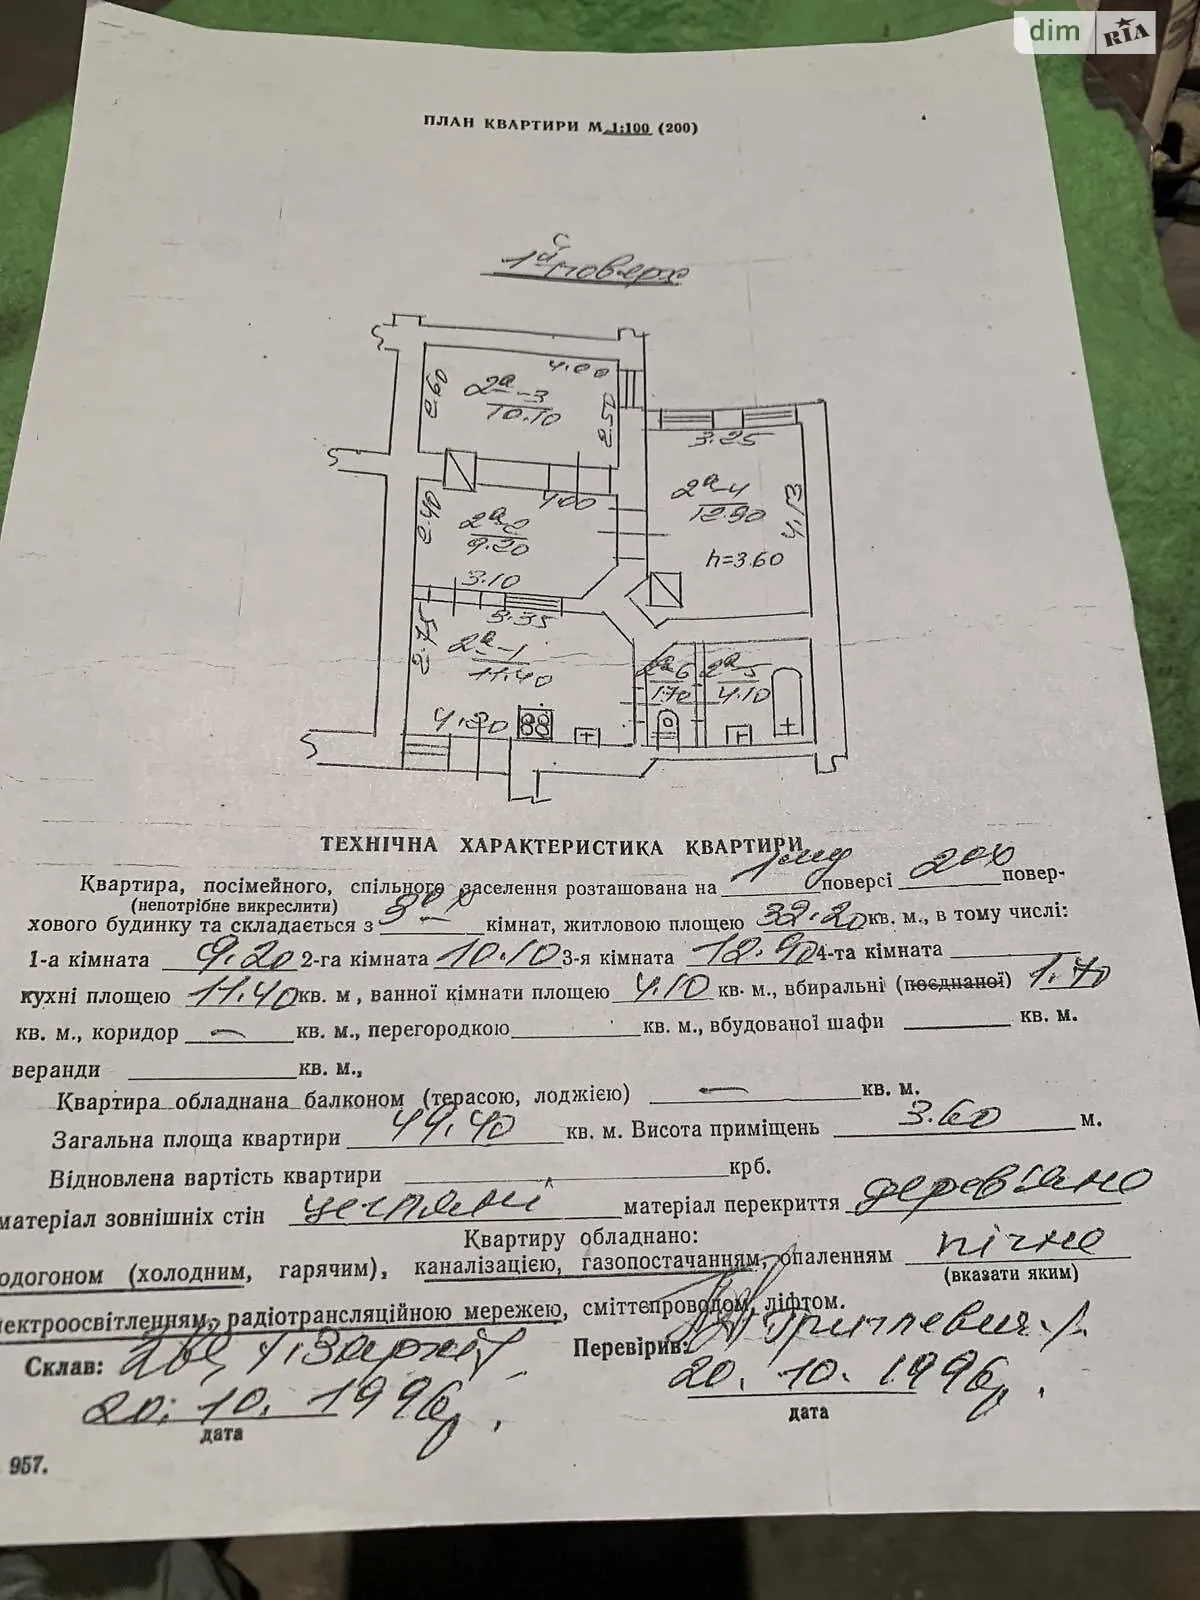 dim RIA
ПЛАН КВАРТИРИ М 1:100 (200)
1й поверх
4.00
2.60
2а-3
10.10
2.50
3.25
2а-4
12.90
4.13
h=3.60
4.00
2.40
2а-2
9.20
3.10
3.35
2.75
2а-1
11.40
2а-6
1.70
2а-5
4.10
4.20
ТЕХНІЧНА ХАРАКТЕРИСТИКА КВАРТИРИ
Квартира, посімейного, спільного заселення розташована на 1му поверсі 2ох повер-
(непотрібне викреслити)
хового будинку та складається з 3ох кімнат, житловою площею 32.20 кв. м., в тому числі:
1-а кімната 9.20 2-га кімната 10.10 3-я кімната 12.90 4-та кімната
кухні площею 11.40 кв. м, ванної кімнати площею 4.10 кв. м., вбиральні (поєднаної) 1.70
кв. м., коридор — кв. м., перегородкою кв. м., вбудованої шафи кв. м.
веранди кв. м.,
Квартира обладнана балконом (терасою, лоджією) — кв. м.
Загальна площа квартири 49.40 кв. м. Висота приміщень 3.60 м.
Відновлена вартість квартири крб.
матеріал зовнішніх стін цегляні матеріал перекриття дерев'яно
Квартиру обладнано:
одогоном (холодним, гарячим), каналізацією, газопостачанням, опаленням пічне
(вказати яким)
лектроосвітленням, радіотрансляційною мережею, сміттєпроводом, ліфтом.
Склав: Перевірив:
20. 10. 1996р. 20. 10. 1996р.
дата дата
957.